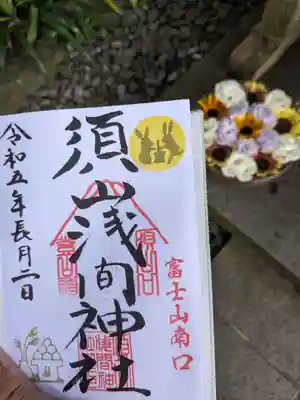 富士山南口
須山浅間神社
令和五年長月二日